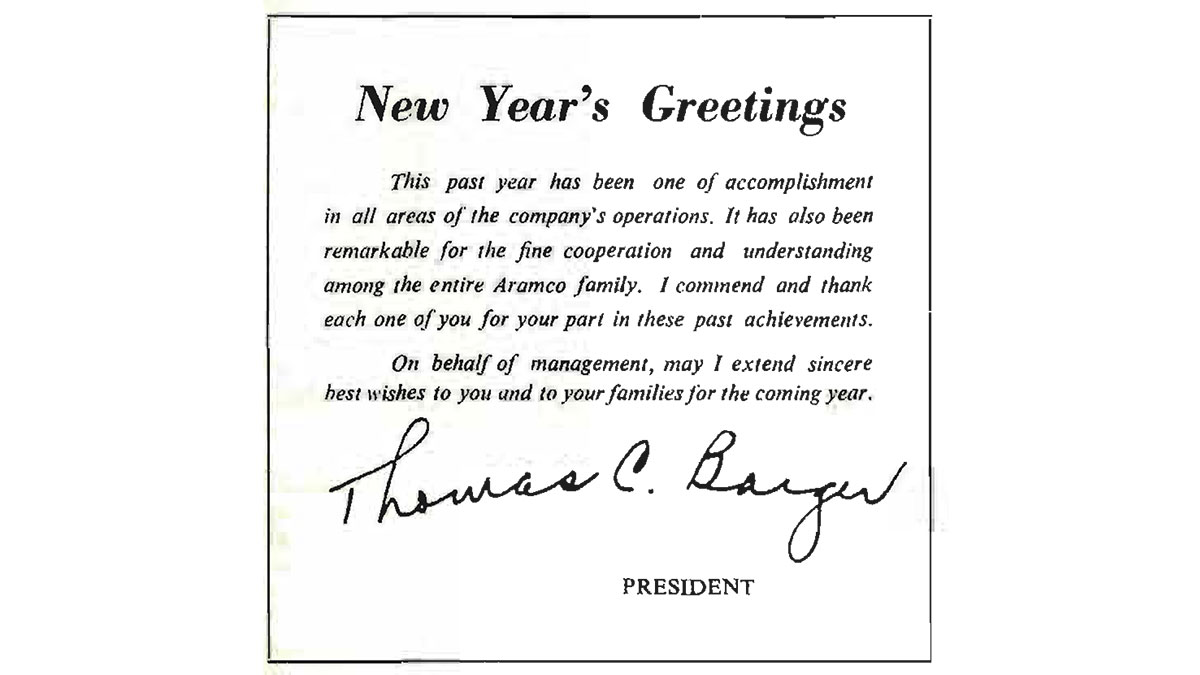 New Year's Greetings
This past year has been one of accomplishment
in all areas of the company's operations. It has also been
remarkable for the fine cooperation and understanding
among the entire Aramco family. I commend and thank
each one of you for your part in these past achievements.
On behalf of management, may I extend sincere
best wishes to you and to your families for the coming year.
Thomas C. Barger
PRESIDENT